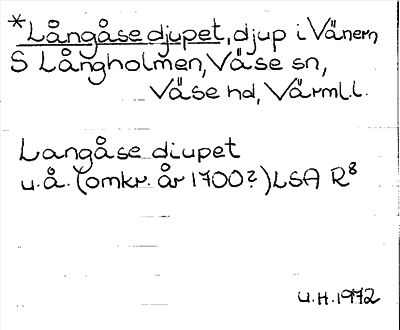 *Långåse djupet, djup i Vänern
S Långholmen, Väse sn,
Väse hd, Värml.l.
Langåse diupet
u.å. (omkr. år 1700?) LSA R8
U.H. 1972